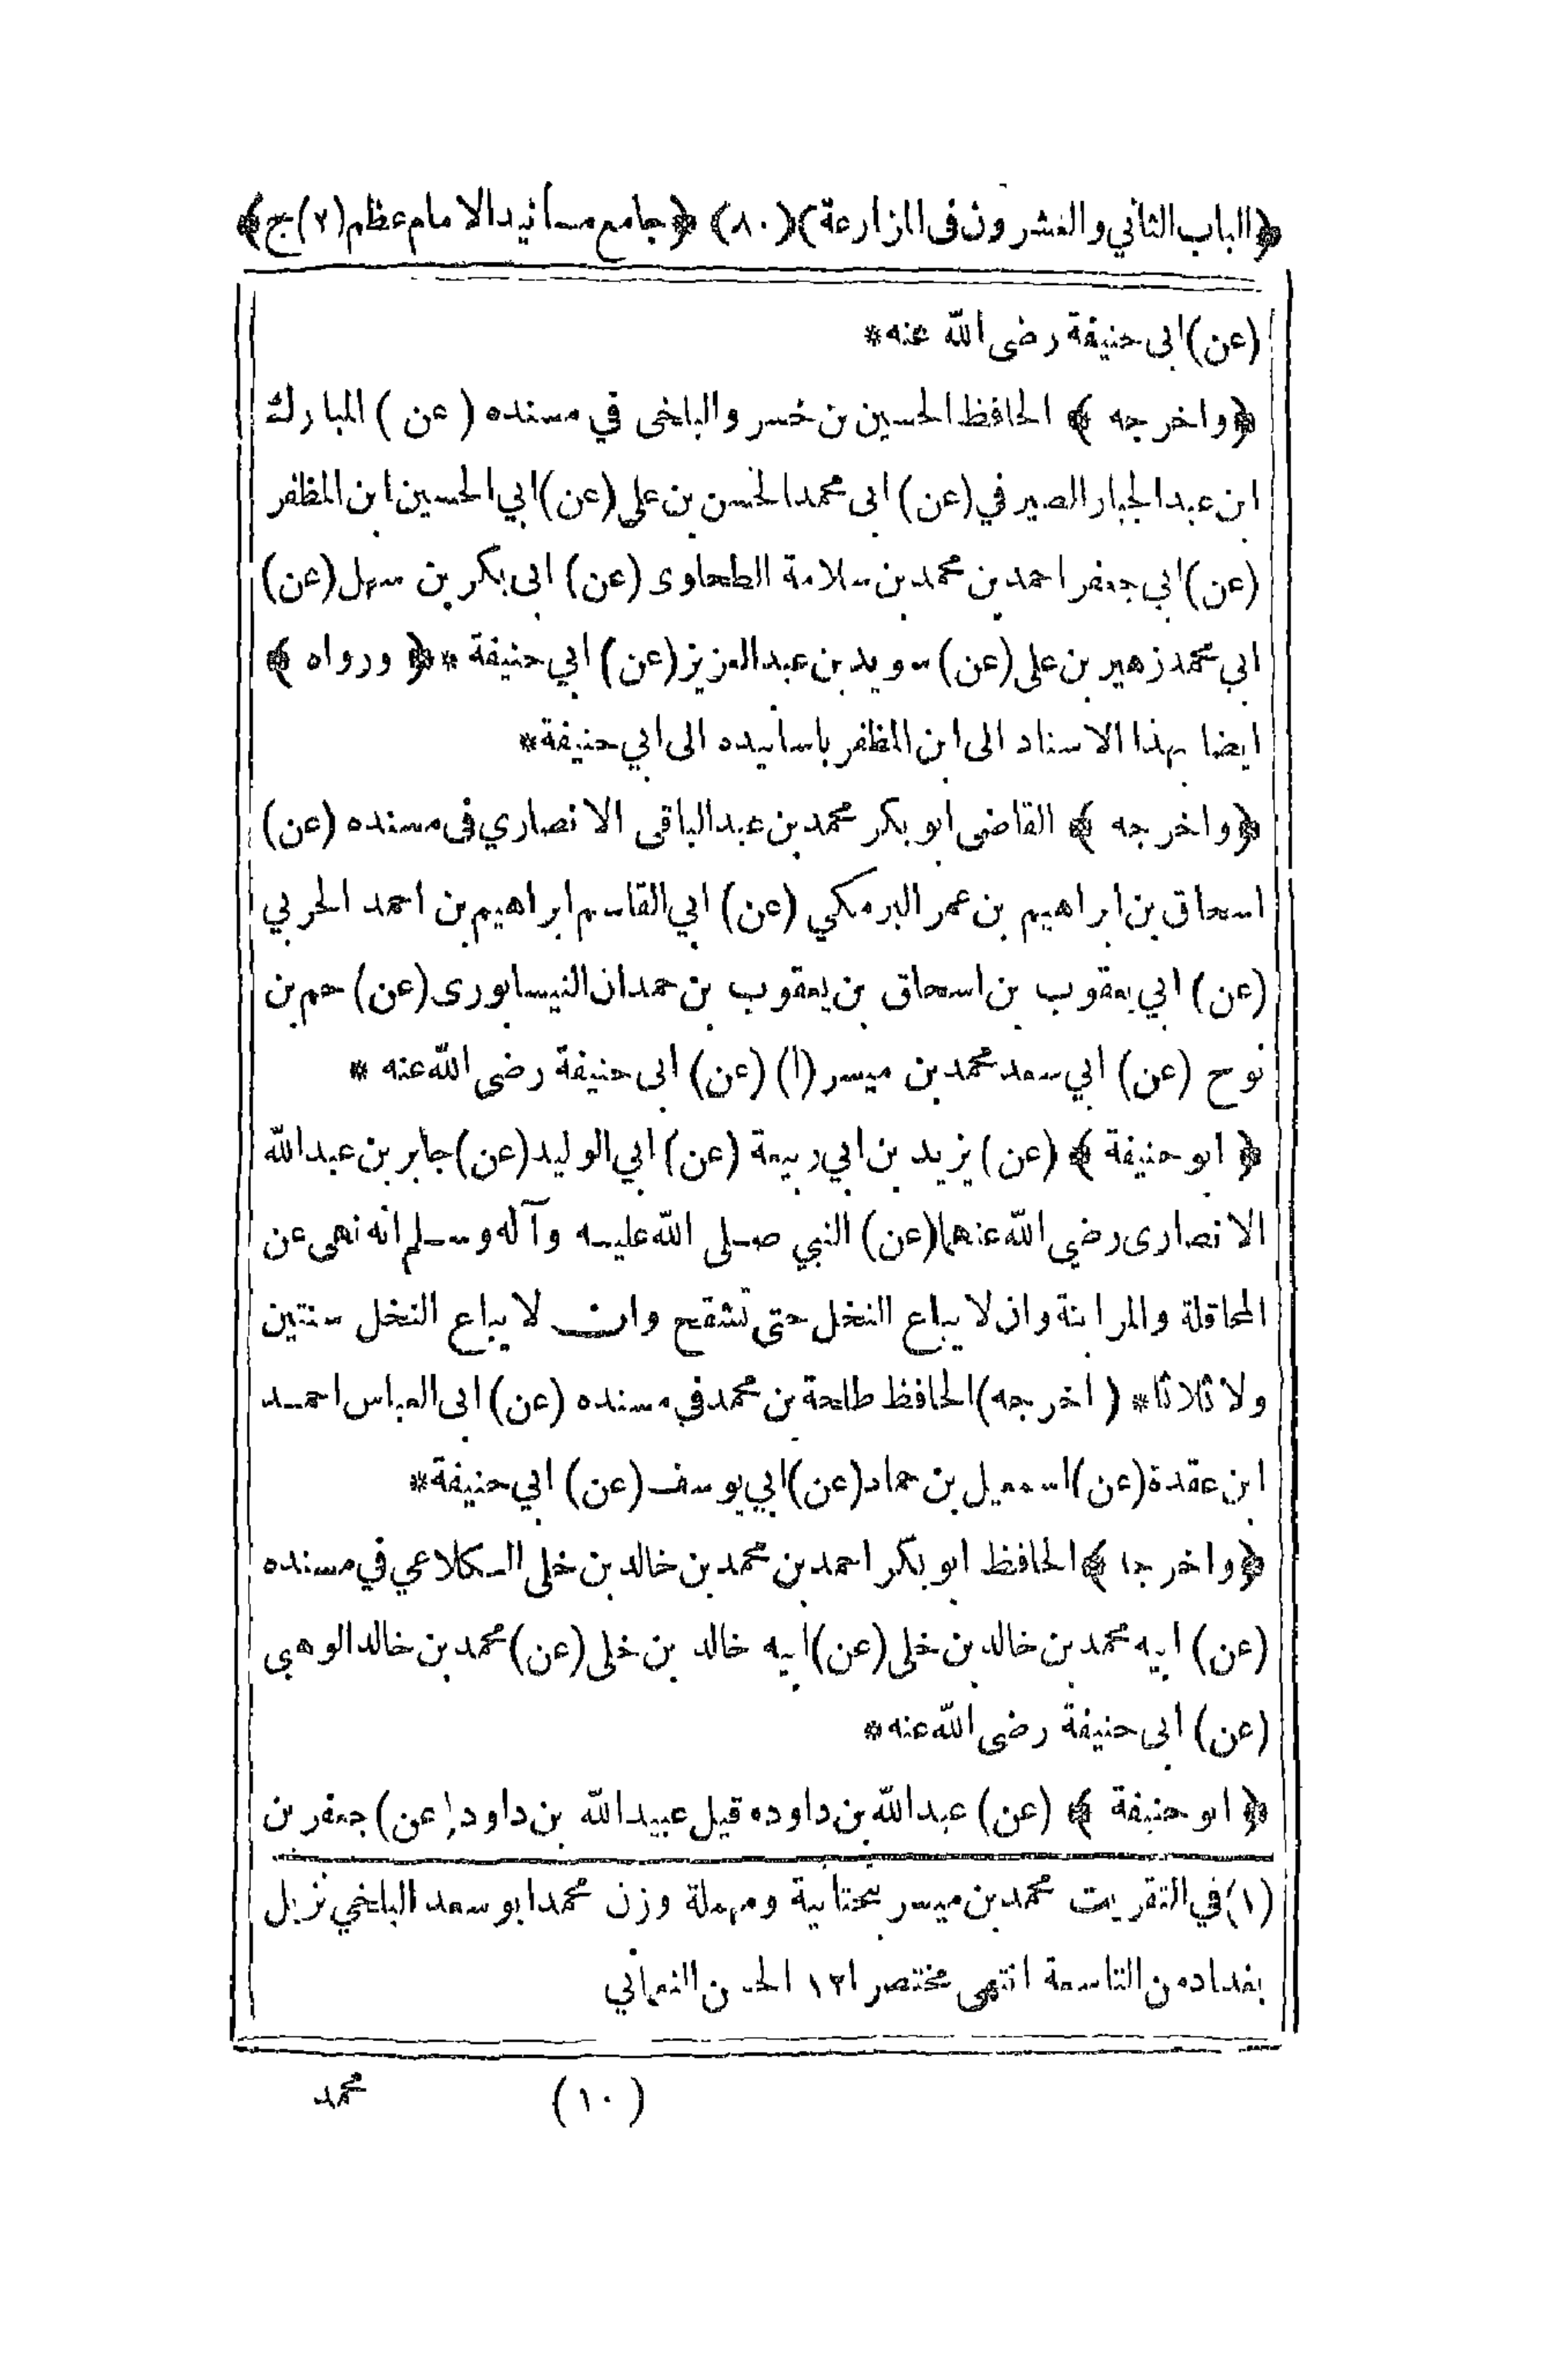 ﴿الباب الثاني والعشرون فى المزارعة﴾ (٨٠) ﴿جامع مسانيد الامام عظم (٢) ج﴾
(عن) ابى حنيفة رضى الله عنه*
﴿واخرجه﴾ الحافظ الحسين بن خسر والبلخى في مسنده (عن) المبارك
ابن عبد الجبار الصيرفي (عن) ابى محمد الحسن بن على (عن) ابي الحسين ابن المظفر
(عن) ابي جعفر احمد بن محمد بن سلامة الطحاوى (عن) ابى بكر بن سهل (عن)
ابي محمد زهير بن على (عن) سويد بن عبد العزيز (عن) ابي حنيفة * ﴿ورواه﴾
ايضا بهذا الاسناد الى ابن المظفر باسانيده الى ابي حنيفة*
﴿واخرجه﴾ القاضى ابو بكر محمد بن عبد الباقى الانصاري فى مسنده (عن)
اسحاق بن ابراهيم بن عمر البرمكي (عن) ابي القاسم ابراهيم بن احمد الحربي
(عن) ابي يعقوب بن اسحاق بن يعقوب بن حمدان النيسابورى (عن) حم بن
نوح (عن) ابي سعد محمد بن ميسر (١) (عن) ابى حنيفة رضى الله عنه *
﴿ابو حنيفة﴾ (عن) يزيد بن ابي ربيعة (عن) ابي الوليد (عن) جابر بن عبد الله
الانصارى رضي الله عنهما (عن) النبي صلى الله عليه وآله وسلم انه نهى عن
المحاقلة والمزابنة وان لا يباع النخل حتى تشقح وان لا يباع النخل سنتين
ولا ثلاثا* (اخرجه) الحافظ طلحة بن محمد في مسنده (عن) ابى العباس احمد
ابن عقدة (عن) اسمعيل بن حماد (عن) ابي يوسف (عن) ابي حنيفة*
﴿واخرجا﴾ الحافظ ابو بكر احمد بن محمد بن خالد بن خلى الكلاعي في مسنده
(عن) ابيه محمد بن خالد بن خلى (عن) ابيه خالد بن خلى (عن) محمد بن خالد الوهبى
(عن) ابى حنيفة رضى الله عنه*
﴿ابو حنيفة﴾ (عن) عبد الله بن داود ه قيل عبيد الله بن داود (عن) جعفر بن
(١) في التقريب محمد بن ميسر بتحتانية ومهملة وزن محمد ابو سعد البلخي نزيل
بغداد من التاسعة انتهى مختصرا ١٢ الحسن النعماني
(١٠) محمد